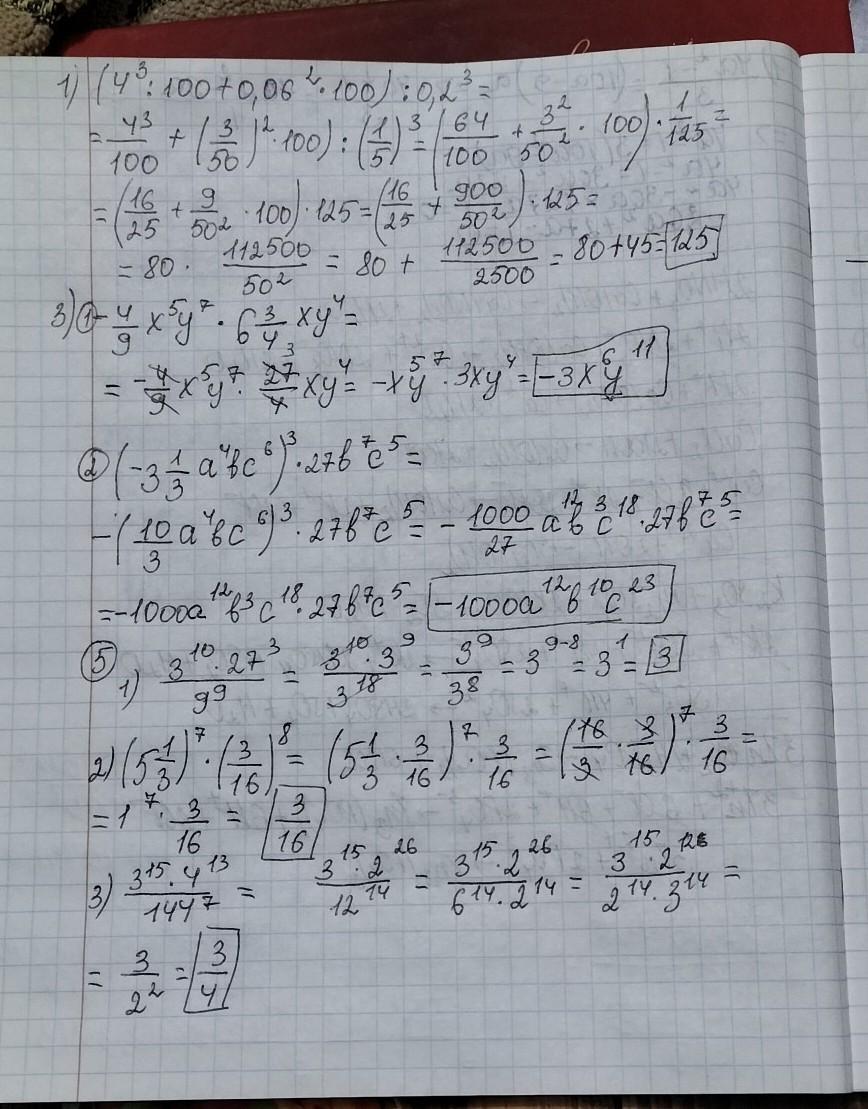 1) (4³:100+0,06²·100):0,2³=
=4³/100 + (3/50)²·100):(1/5)³=(64/100 + 3²/50² · 100)·1/125=
=(16/25 + 9/50² ·100)·125=(16/25 + 900/50²)·125=
=80 · 112500/50² = 80 + 112500/2500 = 80+45=125
3) ① -4/9 x⁵y⁷ · 6 3/4 xy⁴=
= -4/9 x⁵y⁷ · 27/4 xy⁴= -xy⁵ ⁷ · 3xy⁴= -3x⁶y¹¹
② (-3 1/3 a⁴bc⁶)³·27b⁷c⁵=
-(10/3 a⁴bc⁶)³ · 27b⁷c⁵= - 1000/27 a¹²b³c¹⁸·27b⁷c⁵=
=-1000a¹²b³c¹⁸·27b⁷c⁵= -1000a¹²b¹⁰c²³
⑤ 1) 3¹⁰·27³/9⁹ = 3¹⁰·3⁹/3¹⁸ = 3⁹/3⁸ = 3⁹⁻⁸= 3¹= 3
2) (5 1/3)⁷·(3/16)⁸= (5 1/3 · 3/16)⁷ · 3/16 = (16/3 · 3/16)⁷ · 3/16 =
= 1⁷ · 3/16 = 3/16
3) 3¹⁵·4¹³/144⁷ = 3¹⁵·2²⁶/12¹⁴ = 3¹⁵·2²⁶/6¹⁴·2¹⁴ = 3¹⁵·2¹²⁶/2¹⁴·3¹⁴ =
= 3/2² = 3/4